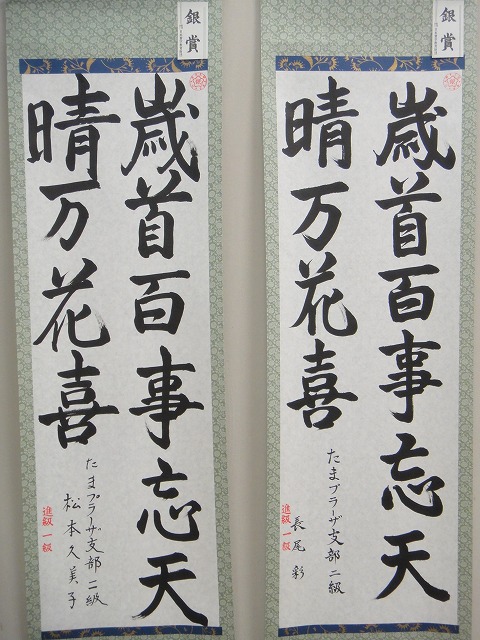 銀賞
歳首百事忘天
晴万花喜
たまプラーザ支部 二級
長尾 彩
進級 一級
銀賞
歳首百事忘天
晴万花喜
たまプラーザ支部 二級
松本久美子
進級 一級